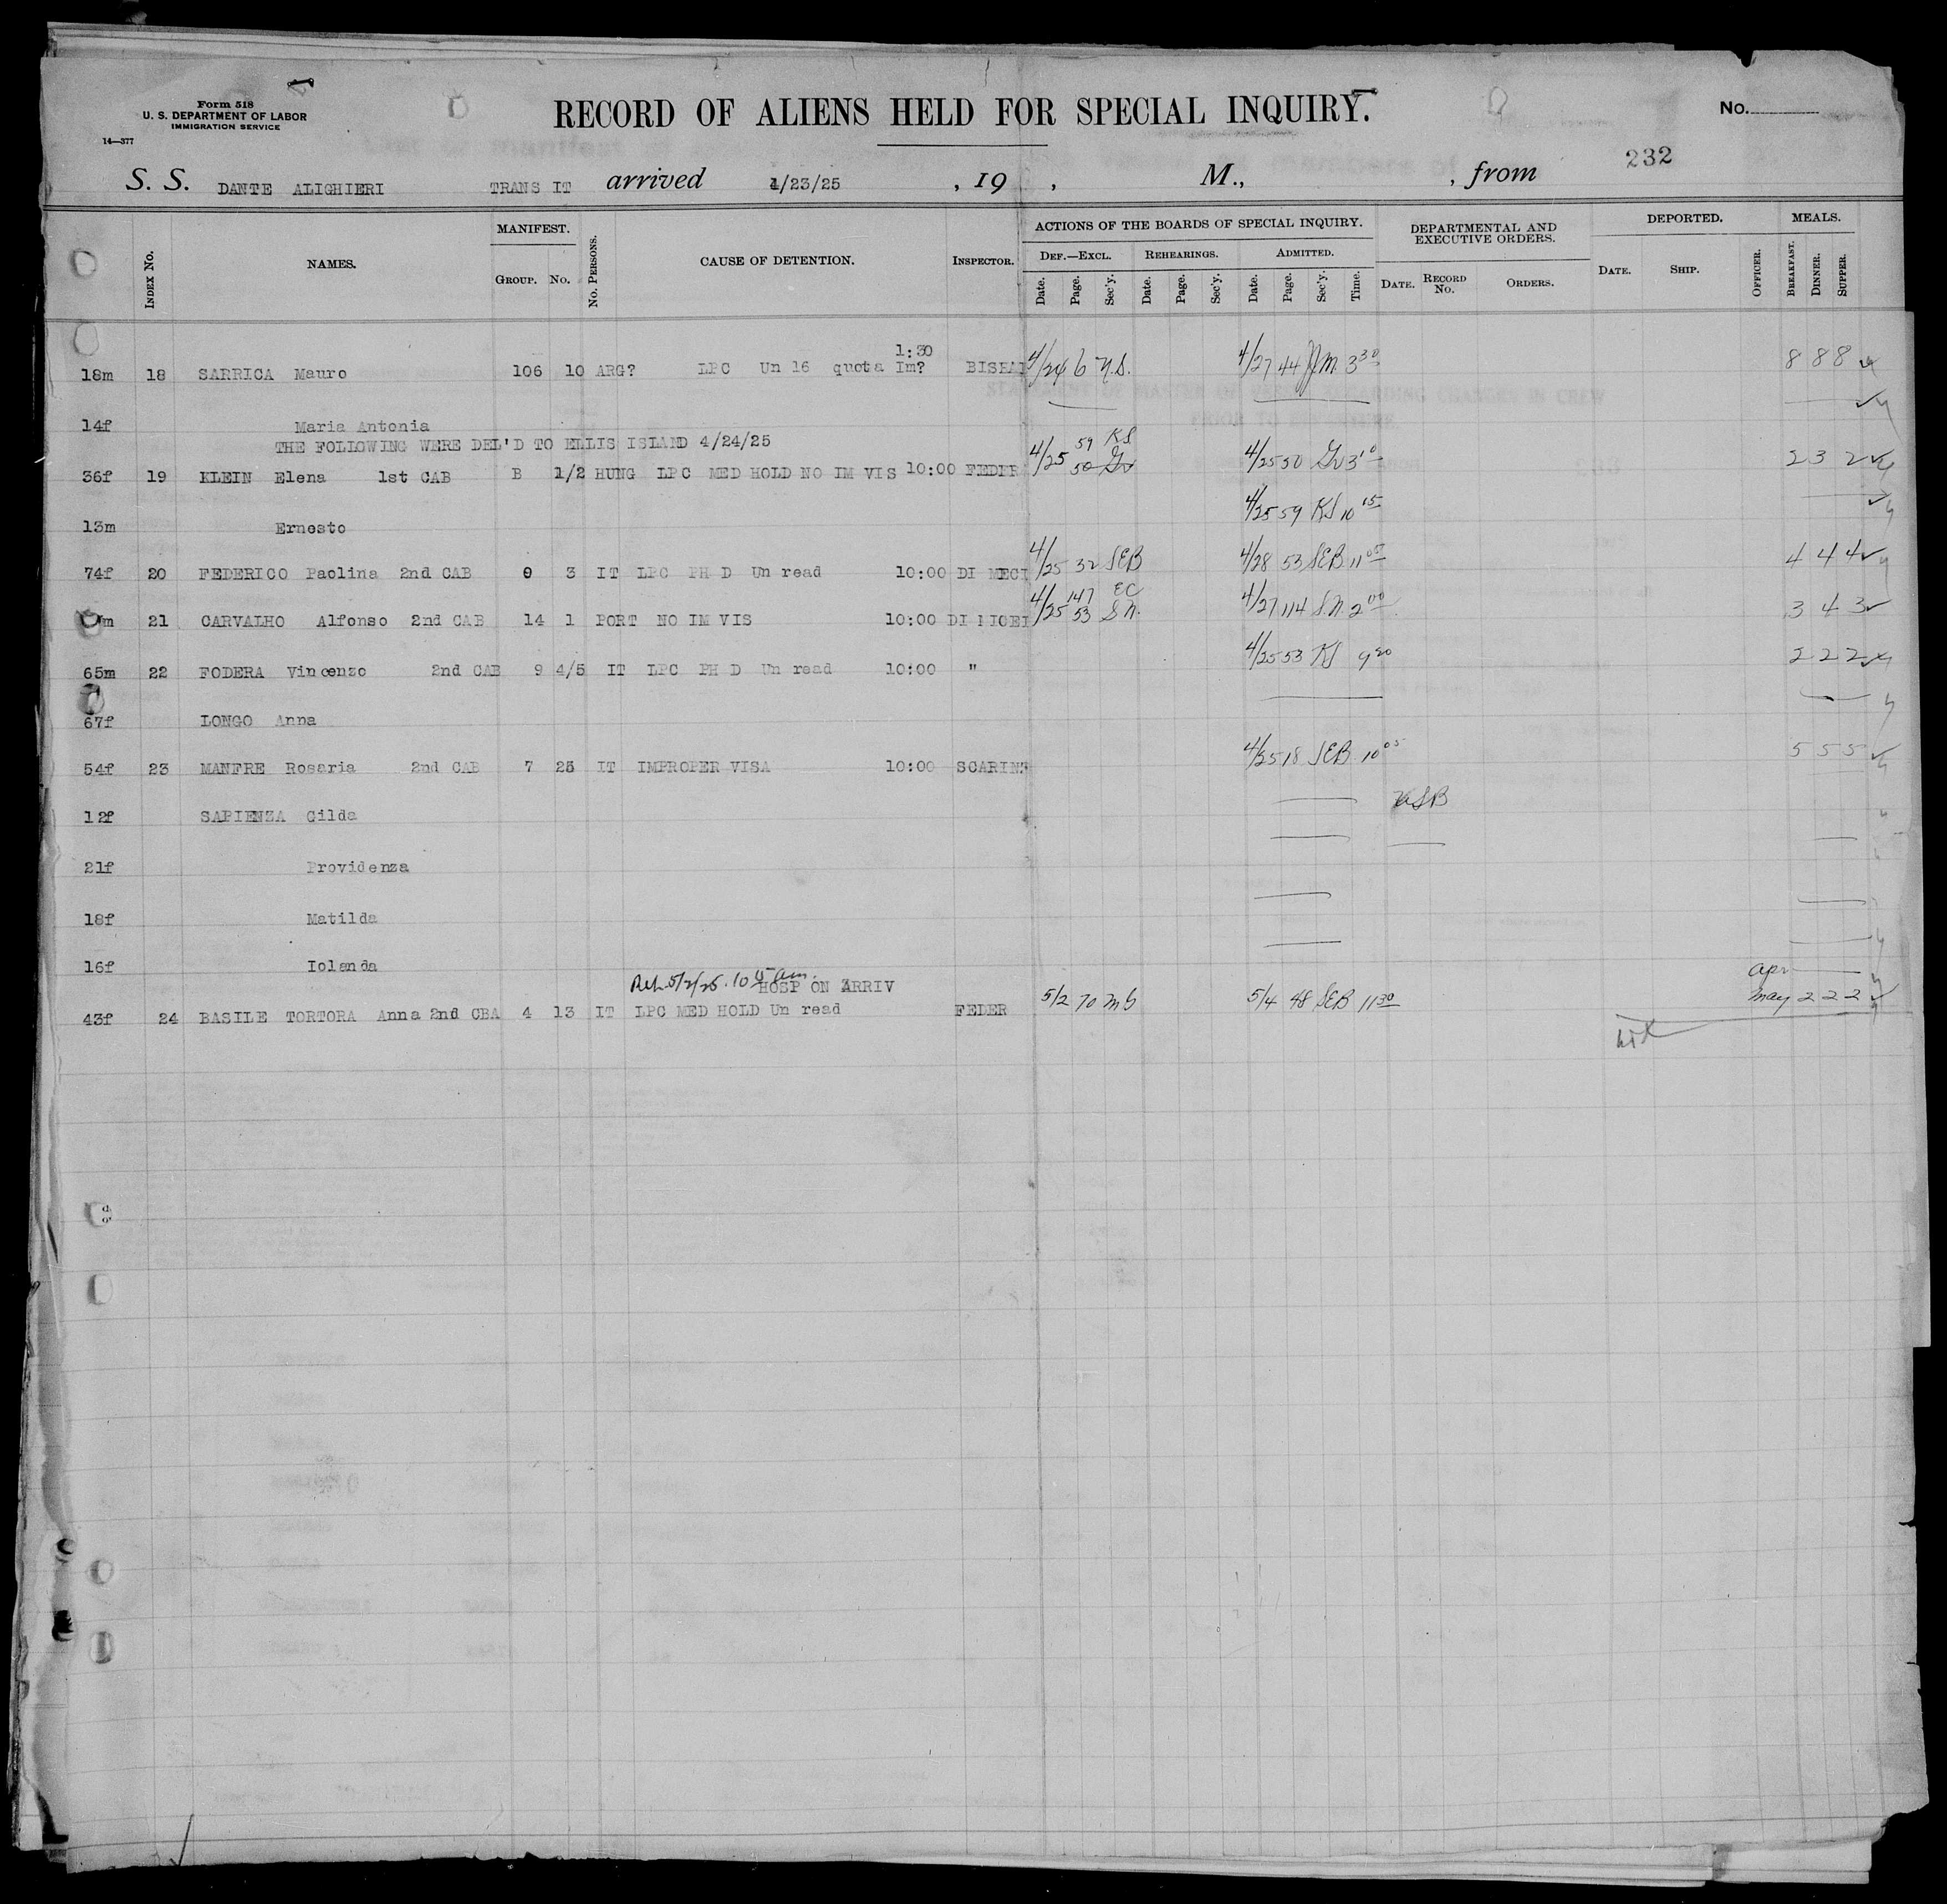 Form 518
U. S. DEPARTMENT OF LABOR
IMMIGRATION SERVICE
14—377
RECORD OF ALIENS HELD FOR SPECIAL INQUIRY.
No.
232
S. S. DANTE ALIGHIERI TRANS IT arrived 4/23/25 , 19 , M., , from
INDEX No. NAMES. MANIFEST. GROUP. No. No. PERSONS. CAUSE OF DETENTION. INSPECTOR. ACTIONS OF THE BOARDS OF SPECIAL INQUIRY. DEF.—EXCL. Date. Page. Sec'y. REHEARINGS. Date. Page. Sec'y. ADMITTED. Date. Page. Sec'y. Time. DEPARTMENTAL AND EXECUTIVE ORDERS. DATE. RECORD No. ORDERS. DEPORTED. DATE. SHIP. OFFICER. MEALS. BREAKFAST. DINNER. SUPPER.
1:30
18m 18 SARRICA Mauro 106 10 ARG? LPC Un 16 quota Im? 4/24 6 4/27 44 3 30 8 8 8
14f Maria Antonia
THE FOLLOWING WERE DEL'D TO ELLIS ISLAND 4/24/25
59 KS
36f 19 KLEIN Elena 1st CAB B 1/2 HUNG LPC MED HOLD NO IM VIS 10:00 4/25 50 Gv 4/25 50 Gv 3 10 2 3 2
13m Ernesto 4/25 59 KS 10 15
74f 20 FEDERICO Paolina 2nd CAB 9 3 IT LPC PH D Un read 10:00 4/25 32 SEB 4/28 53 SEB 11 05 4 4 4
147 EC
m 21 CARVALHO Alfonso 2nd CAB 14 1 PORT NO IM VIS 10:00 4/25 53 S N. 4/27 114 S.N. 2 00 3 4 3
65m 22 FODERA Vincenzo 2nd CAB 9 4/5 IT LPC PH D Un read 10:00 " 4/25 53 KS 9 20 2 2 2
67f LONGO Anna
54f 23 MANFRE Rosaria 2nd CAB 7 25 IT IMPROPER VISA 10:00 4/25 18 SEB 10 05 5 5 5
12f SAPIENZA Gilda
21f Providenza
18f Matilda
16f Iolanda
Reh. 5/2/25. 10 15 am. apr
HOSP ON ARRIV
43f 24 BASILE TORTORA Anna 2nd CBA 4 13 IT LPC MED HOLD Un read FEDER 5/2 70 5/4 48 SEB 11 30 may 2 2 2